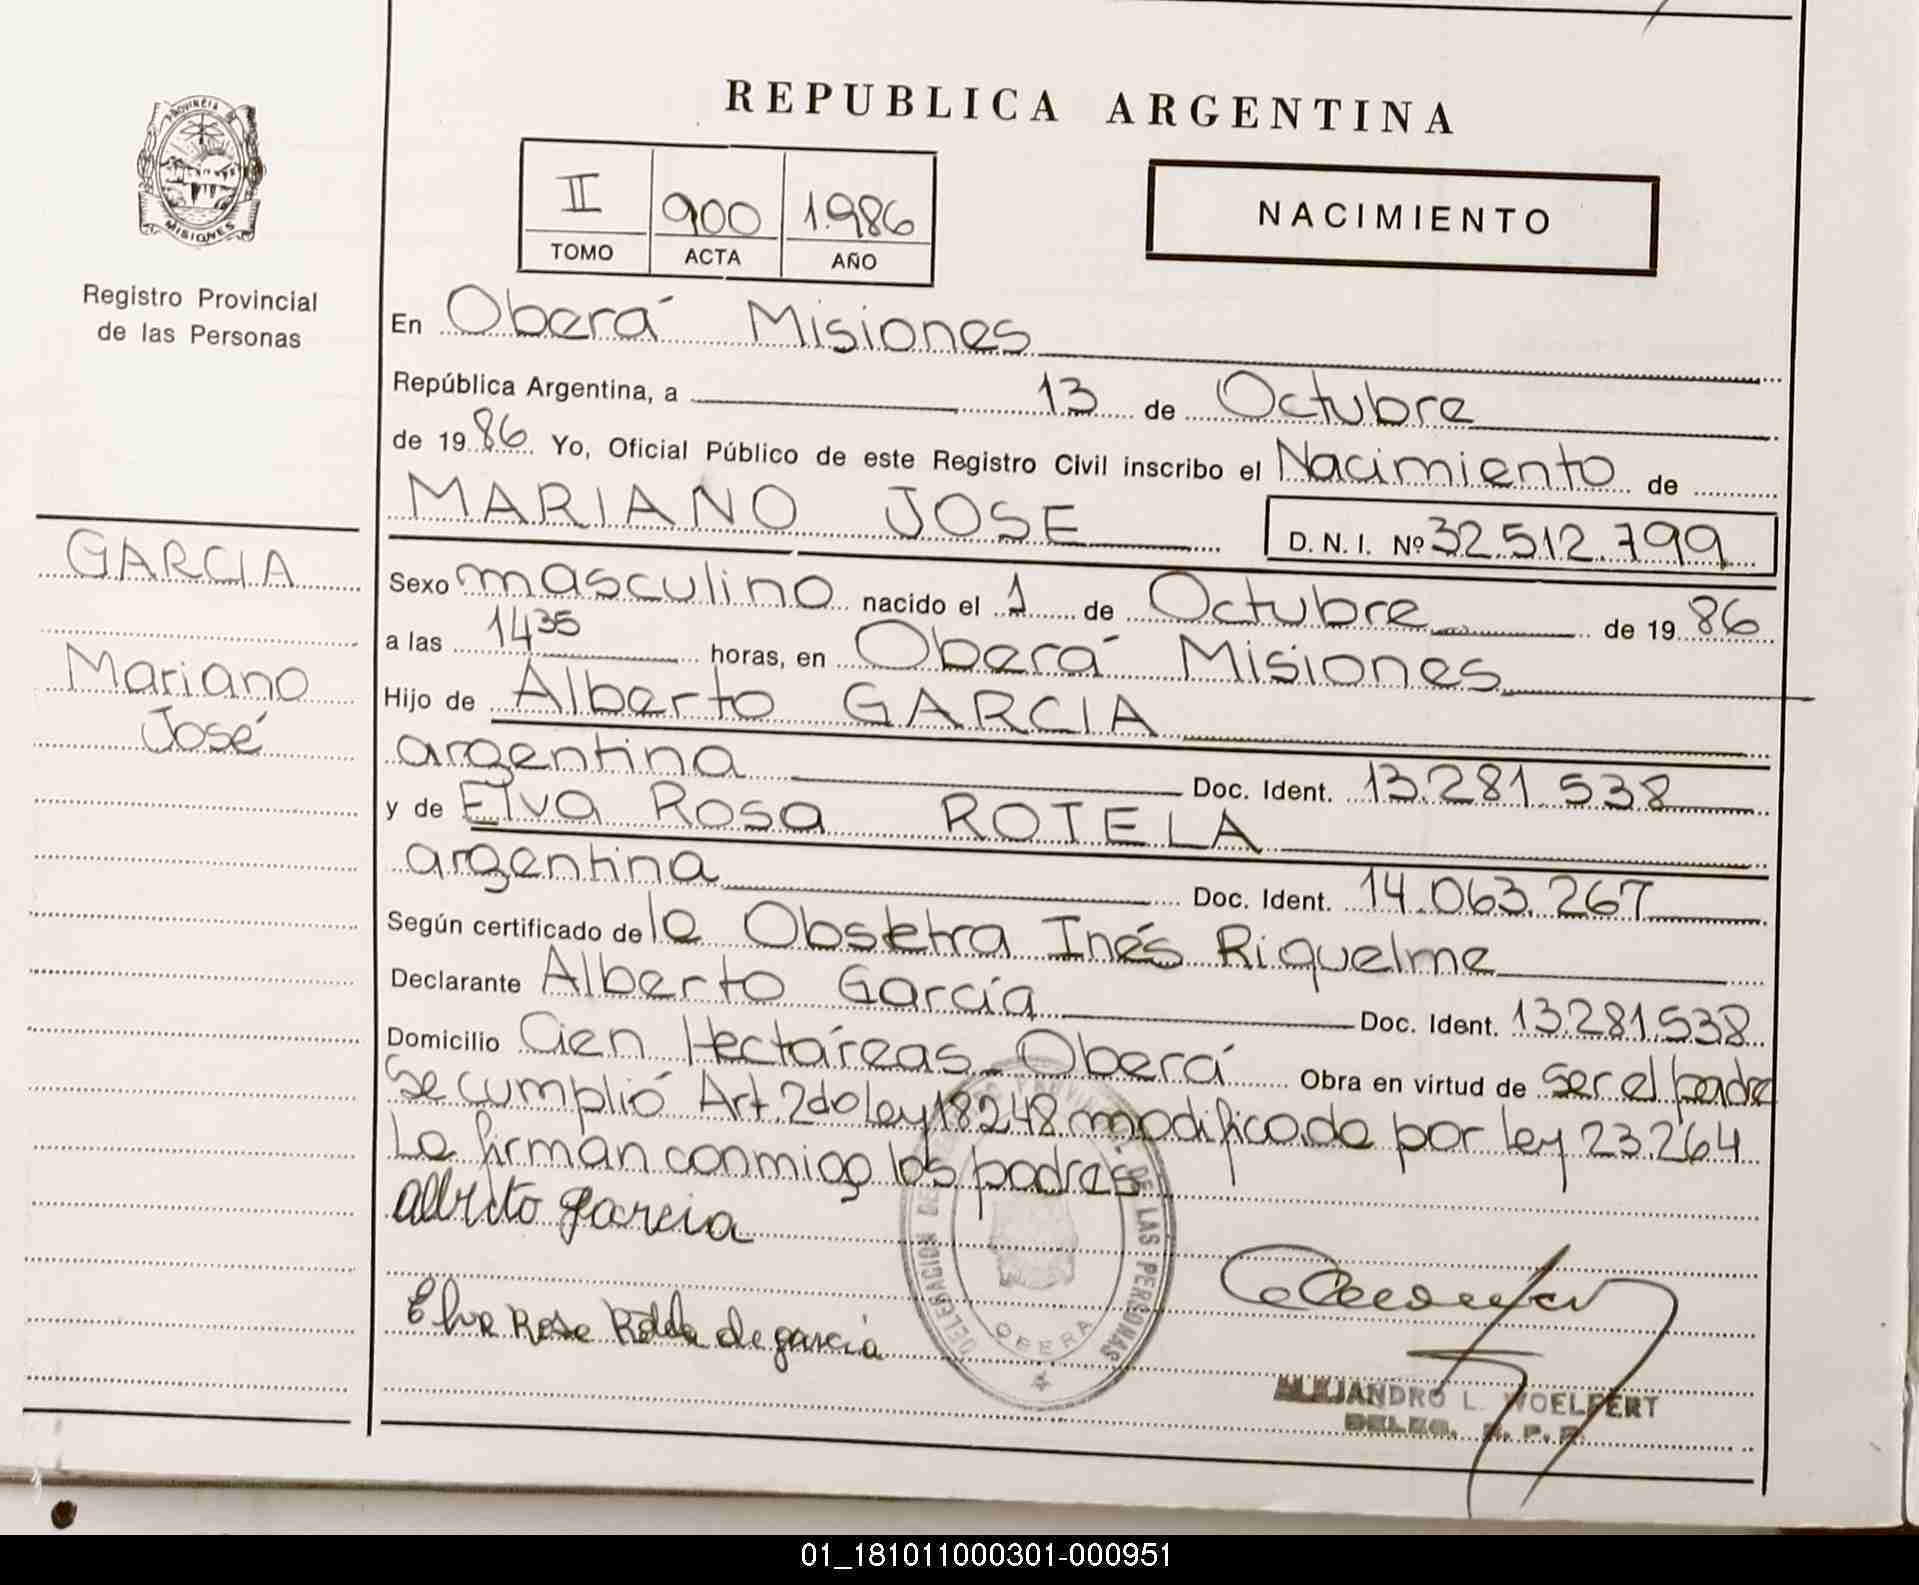 REPUBLICA ARGENTINA
PROVINCIA DE
MISIONES
Registro Provincial
de las Personas
II 900 1.986
TOMO ACTA AÑO
NACIMIENTO
En Oberá Misiones
República Argentina, a 13 de Octubre
de 1986 Yo, Oficial Público de este Registro Civil inscribo el Nacimiento de
MARIANO JOSE D. N. I. Nº 32.512.799
GARCIA
Mariano
José
Sexo masculino nacido el 1 de Octubre de 1986
a las 14 35 horas, en Oberá Misiones
Hijo de Alberto GARCIA
argentina Doc. Ident. 13.281.538
y de Elva Rosa ROTELA
argentina Doc. Ident. 14.063.267
Según certificado de la Obstetra Inés Riquelme
Declarante Alberto García Doc. Ident. 13.281.538
Domicilio Cien Hectáreas - Oberá Obra en virtud de ser el padre
Se cumplió Art. 2do ley 18248 modificada por ley 23.264
La firman conmigo los padres
alberto garcia
Elva Rosa Rotela de garcia
DELEGACION DE PROVINCIAL DE LAS PERSONAS
OBERA
ALEJANDRO L. WOELFERT
DELEG. R. P. P.
01_181011000301-000951